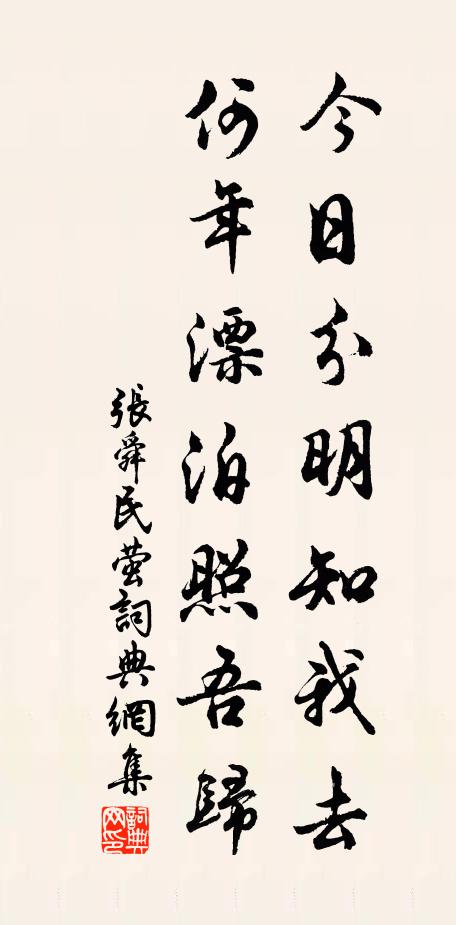 今日分明知我去
何年漂泊照吾歸
張舜民螢詞典網集
詞典網印